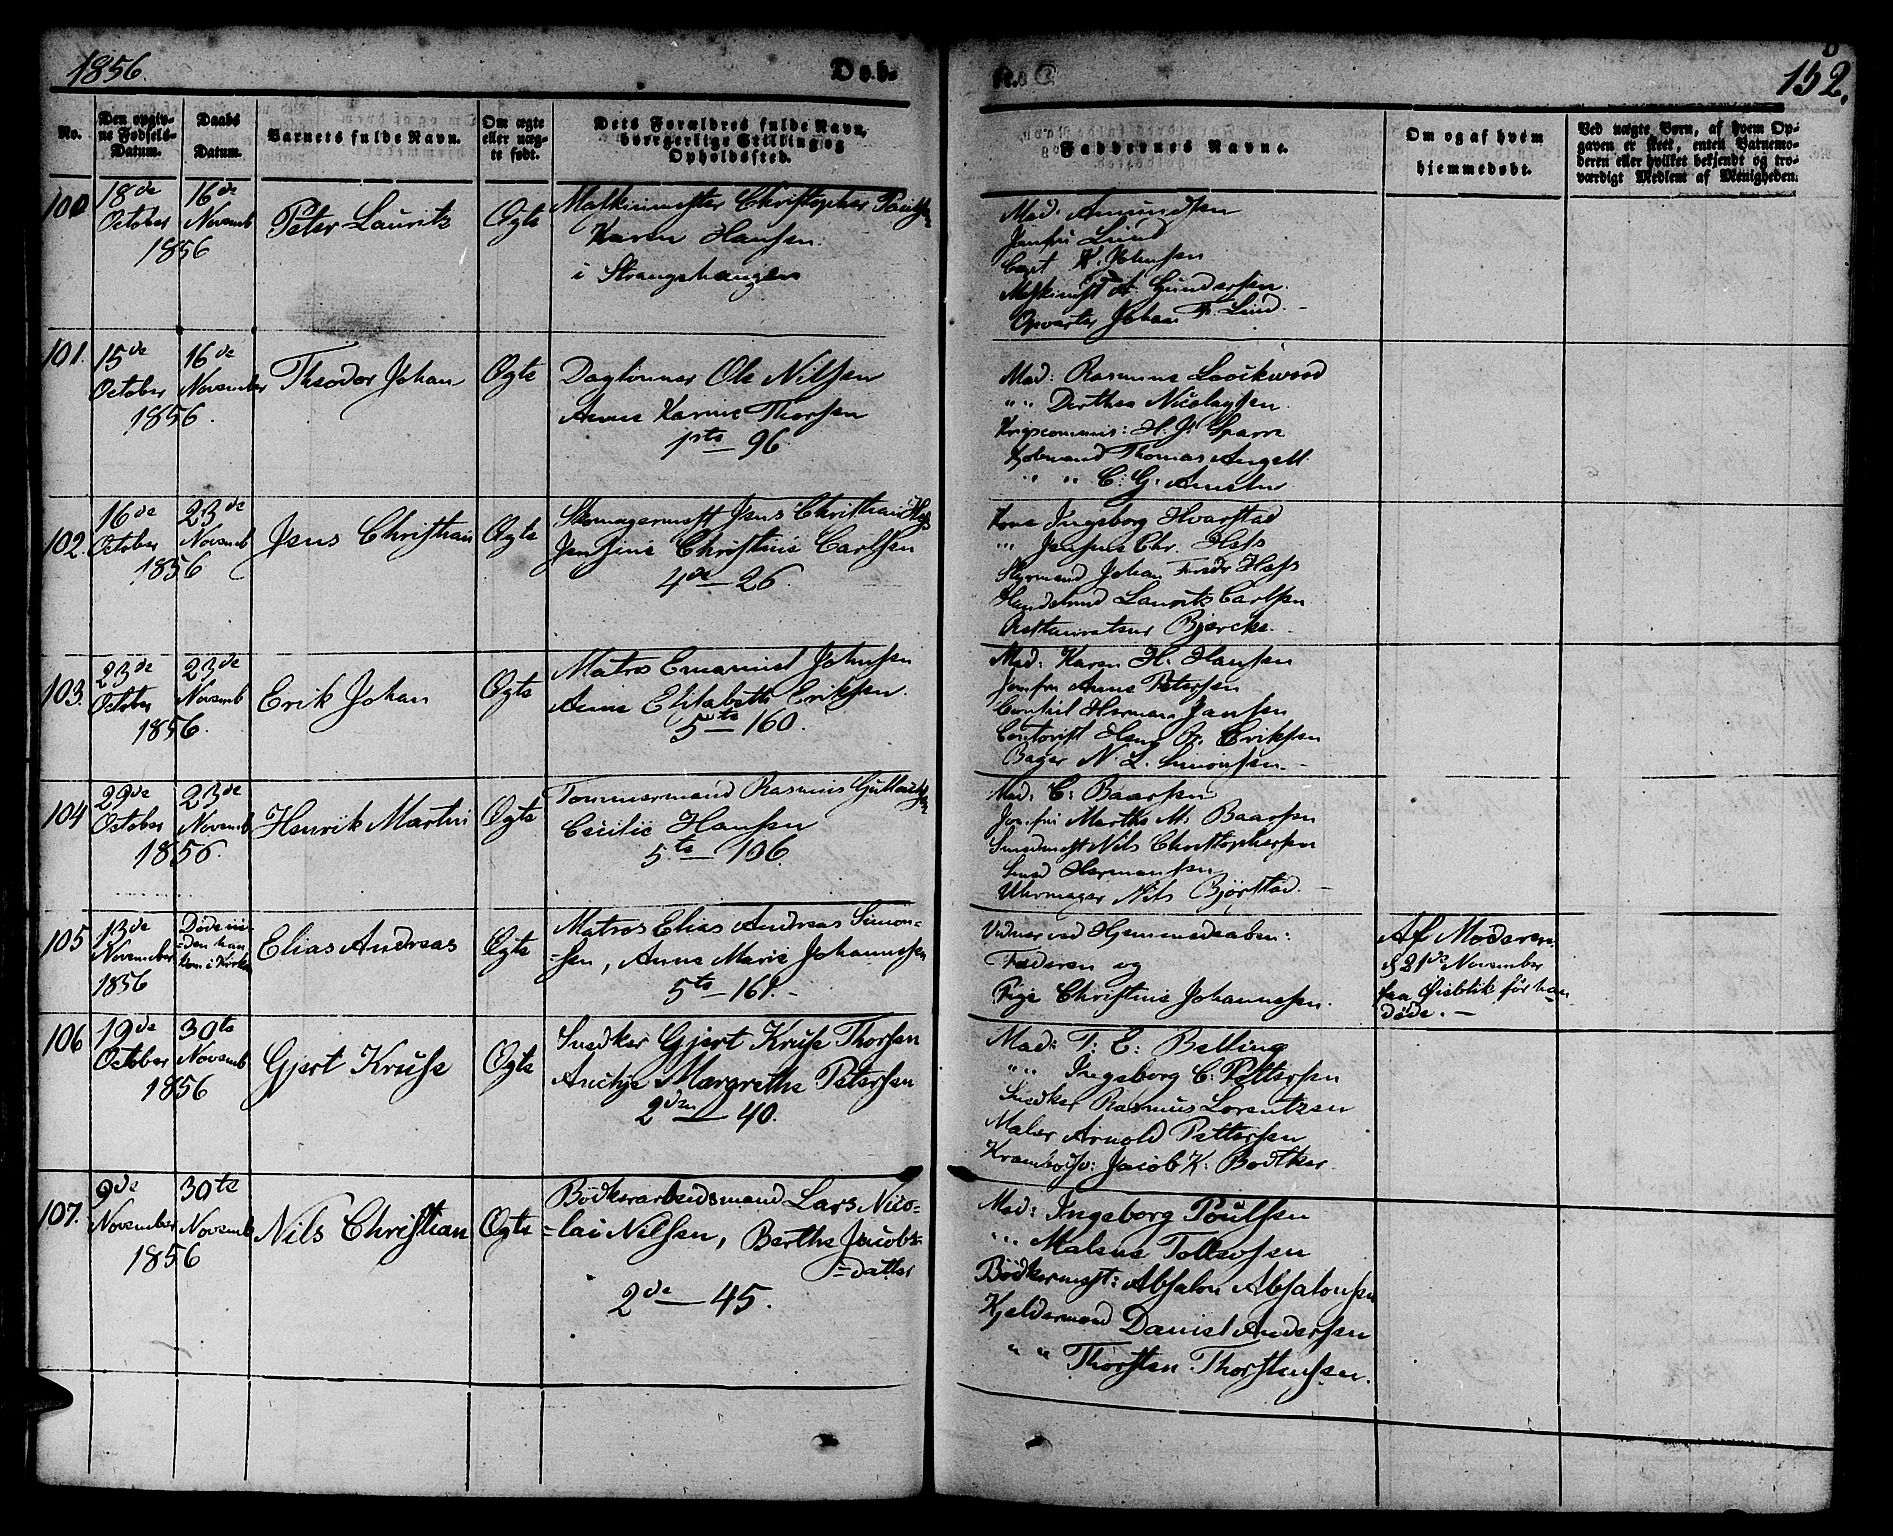 1856.
Døb-
te.
152.
No.
Den opgiv-
ne Fødsels-
Datum.
Daabs
Datum.
Barnets fulde Navn.
Om ægte
eller uæg-
te født.
Dets Forældres fulde Navn,
borgerlige Stilling og
Opholdssted.
Faddernes Navne.
Om og af hvem
hjemmedøbt.
Ved uægte Børn, af hvem Op-
gaven er skeet, enten Barnemo-
deren eller hvilket bekjendt og tro-
værdigt Medlem af Menigheden.
100
18de
October
1856
16de
Novemb
Peter Lauritz
Ægte
Maskinmester Christopher
Karen Hansen.
i Strangehaugen
Mad: Amundsen
Jomfru Lund
Capt K. Johnsen
Maskinmst A. Gundersen.
Opvarter Johan Fr. Lund.
101.
15de
October
1856.
16de
November
Theodor Johan
Ægte
Daglønner Ole Nilsen
Anne Karine Thorsen
1ste - 96
Mad: Rasmine Loockwood
" " Dorthea Nicolaysen.
Krigscommis: H. J. Sparre
Kjøbmand Thomas Angell
" " C: G:
102.
16de
October
1856
23de
Novemb
Jens Christian
Ægte
Skomagermest Jens Christian Hess
Jensine Christine Carlsen
4de - 26.
Kone Ingeborg Hvarstad
" Jensine Chr. Hess
Styrmand Johan Fredr Hess
Lauritz Carlsen
Restaurateur Bjercke.
103.
23de
October
1856.
23de
Novemb
Erik Johan
Ægte
Matros Emanuel Johnsen
Anne Elisabeth Eriksen.
5te - 160.
Mad: Karen H. Hansen
Jomfru Anne Petersen
Herman Jansen
Contorist Eriksen
Bager N. L. Simonsen.
104
29de
October
1856.
23de
Novemb
Henrik Martin
Ægte
Tømmermand Rasmus
Cecilie Hansen
5te - 106.
Mad: C: Baarsen
Jomfru Marthe M: Baarsen
Smedmest Nils Christophersen
Smed Hermansen
Uhrmager Nils Bjørstad.
105
13de
November
1856
Døde in-
den han
kom i Kirke
Elias Andreas
Ægte
Matros Elias Andreas Simon-
-sen, Anne Marie Johannessen
5te - 161.
Vidner ved Hjemmedaaben:
Faderen og
Pige Christine Johannesen.
Af Moderen
d 21de November
faa Øieblik før han
døde.
106
19de
October
1856
30te
Novemb
Gjert Kruse
Ægte
Snedker Gjert Kruse Thorsen
Margrethe Petersen
2den - 40.
Mad: T: E: Belling
" " Ingeborg C: Pettersen
Snedker Rasmus Lorentzen
Maler Arnold Pettersen
Jacob K: Bødtker.
107.
9de
November
1856
30te
Novemb
Nils Christian
Ægte
Bødkerarbeidsmand Lars Nico-
-lai Nilsen, Berthe Jacobs-
-datter
2de - 45.
Mad: Ingeborg Poulsen
" " Malene Tollevsen
Bødkermest: Absalon Absalonsen
Kjeldermand Daniel Andersen
" " Thorsten Thorstensen.